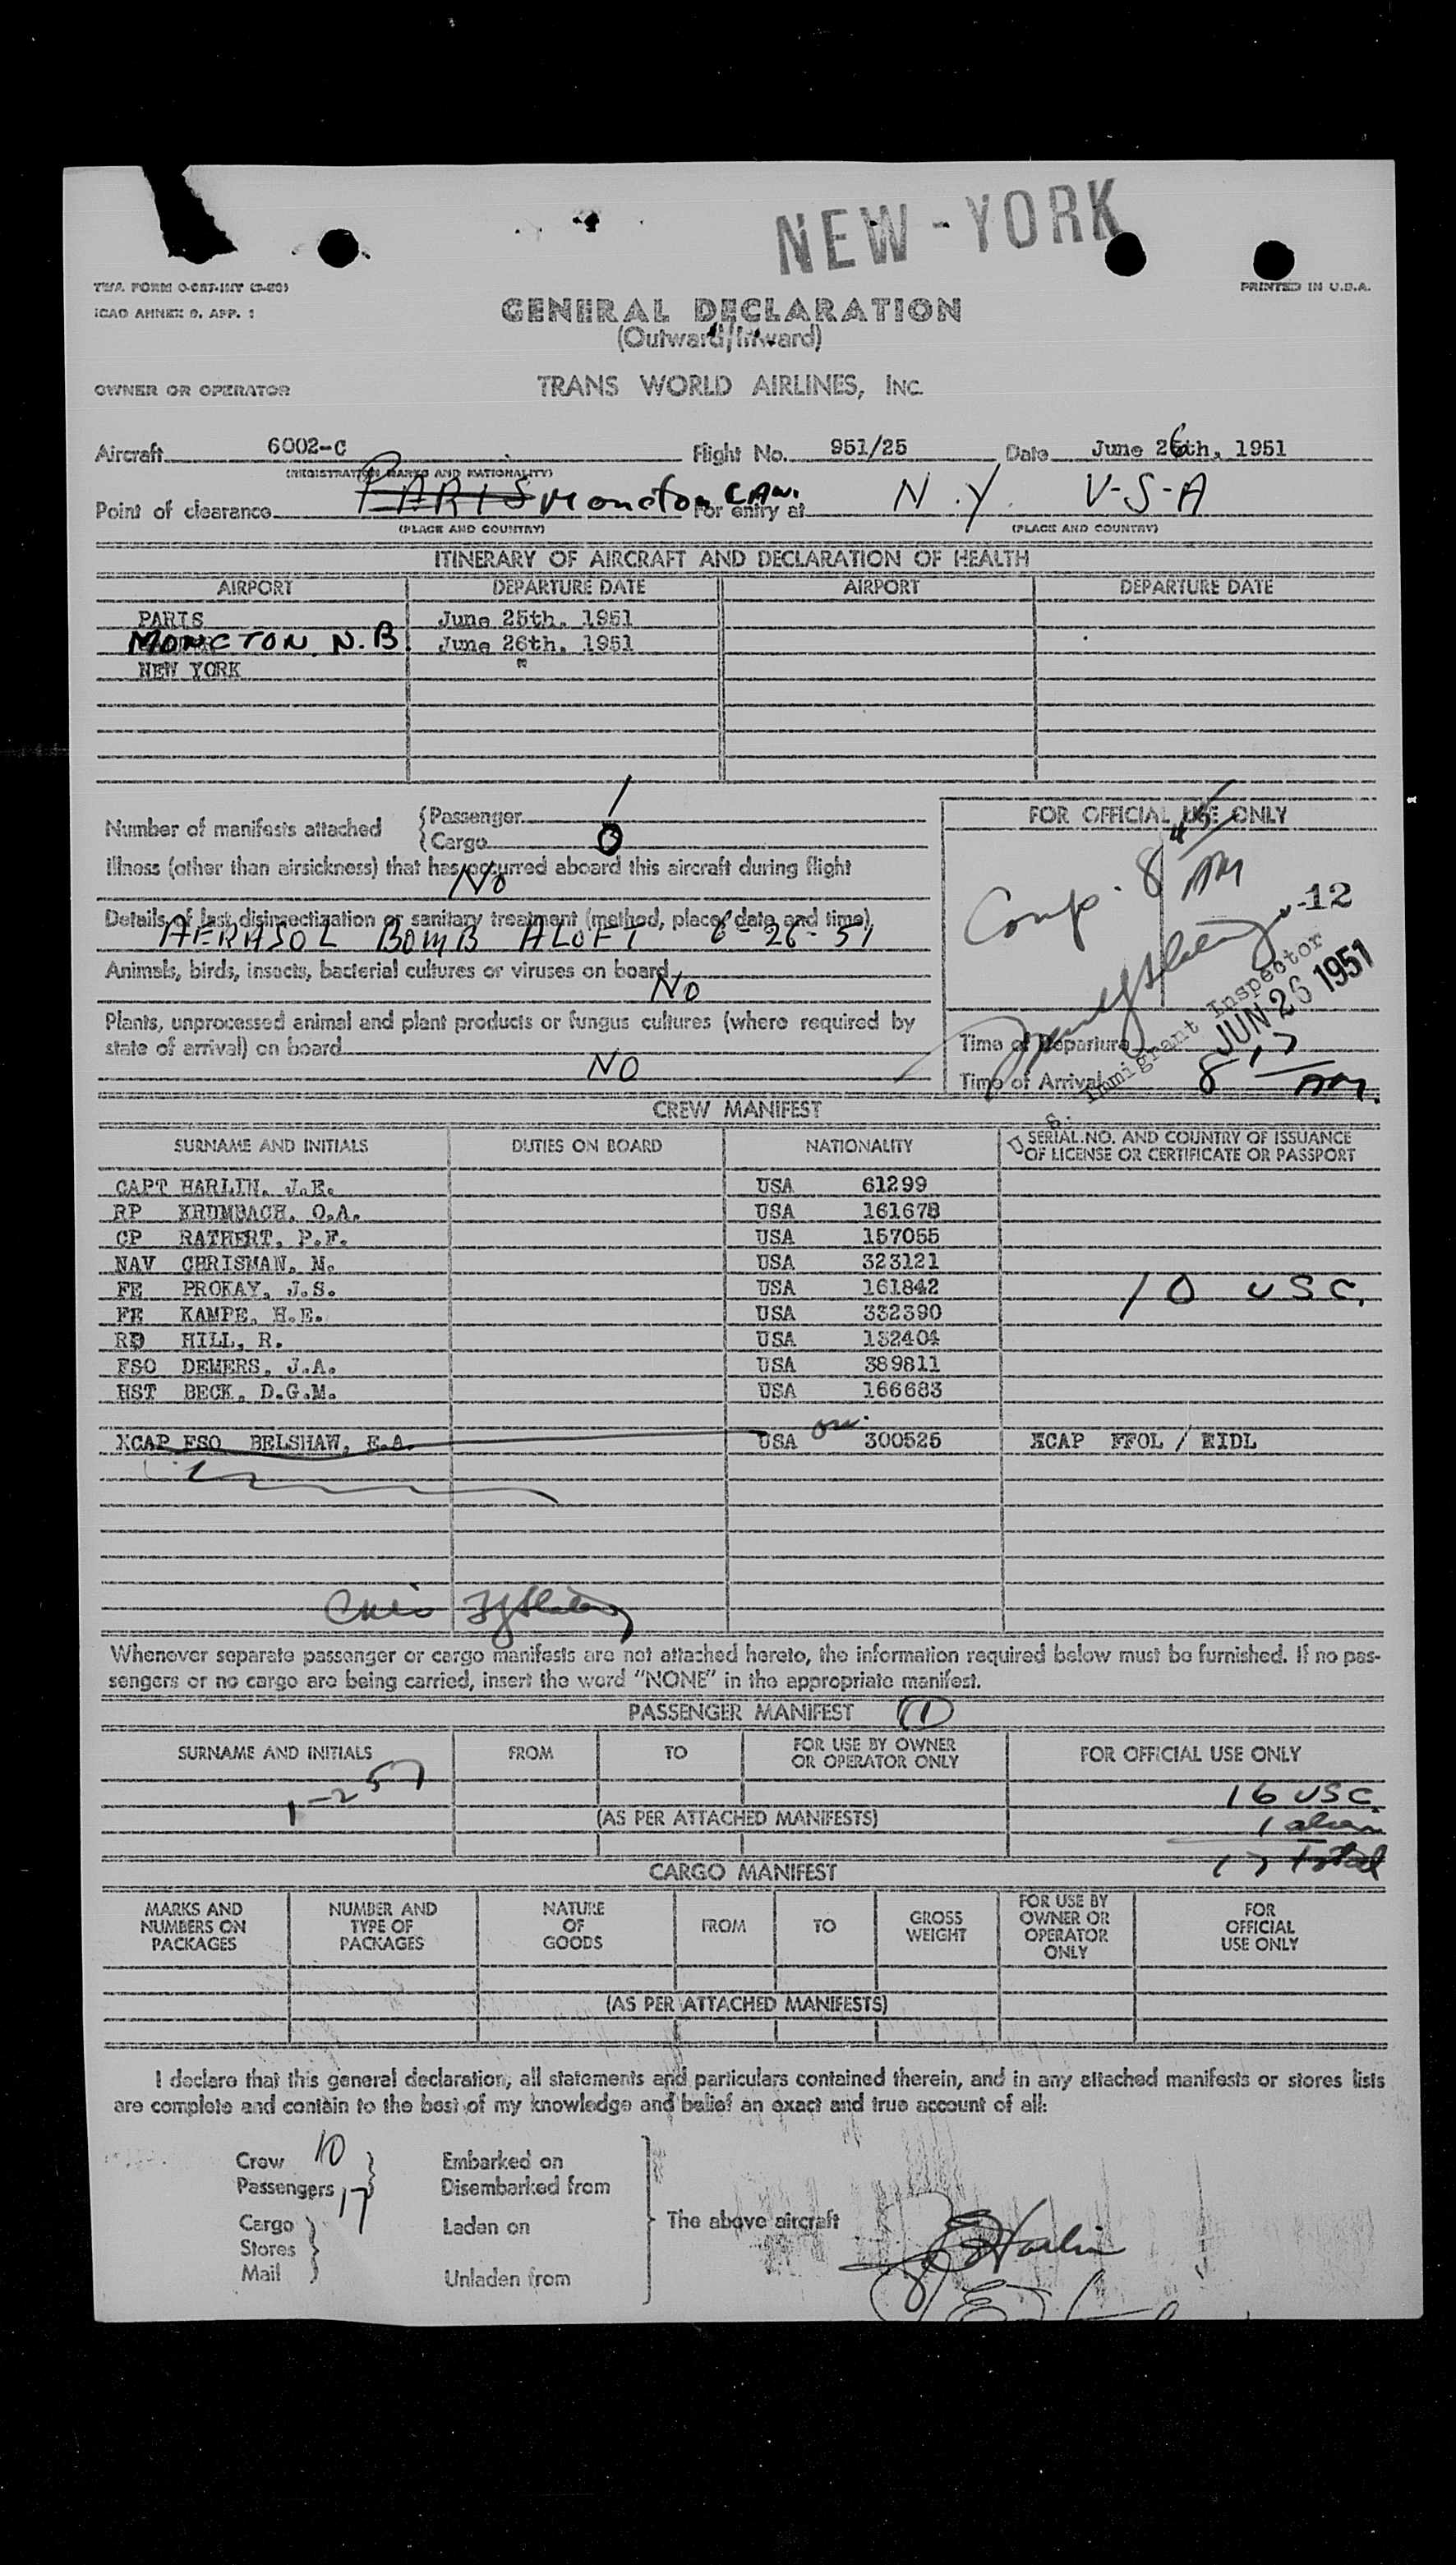 NEW-YORK
TWA FORM O-087-INT (2-50)
ICAO ANNEX 9, APP. 1
PRINTED IN U.S.A.
GENERAL DECLARATION
(Outward/Inward)
OWNER OR OPERATOR TRANS WORLD AIRLINES, INC.
Aircraft 6002-C Flight No. 951/25 Date June 26th, 1951
(REGISTRATION MARKS AND NATIONALITY)
Point of clearance PARIS Moncton CAN. For entry at N.Y. U-S-A
(PLACE AND COUNTRY) (PLACE AND COUNTRY)
ITINERARY OF AIRCRAFT AND DECLARATION OF HEALTH
AIRPORT DEPARTURE DATE AIRPORT DEPARTURE DATE
PARIS June 25th, 1951
MONCTON, N.B. June 26th, 1951
NEW YORK "
Number of manifests attached { Passenger 1
{ Cargo 0
Illness (other than airsickness) that has occurred aboard this aircraft during flight
No
Details of last disinsectization or sanitary treatment (method, place, date and time)
AERASOL BOMB ALOFT 6-26-51
Animals, birds, insects, bacterial cultures or viruses on board
No
Plants, unprocessed animal and plant products or fungus cultures (where required by
state of arrival) on board
NO
FOR OFFICIAL USE ONLY
Comp. 8 45 AM
-12
U. S. Immigrant Inspector
JUN 26 1951
Time of Departure
Time of Arrival 8 17 AM.
CREW MANIFEST
SURNAME AND INITIALS DUTIES ON BOARD NATIONALITY SERIAL NO. AND COUNTRY OF ISSUANCE
OF LICENSE OR CERTIFICATE OR PASSPORT
CAPT HARLIN, J.E. USA 61299
RP KRUMBACH, O.A. USA 161678
CP RATHERT, P.F. USA 157055
NAV CHRISMAN, N. USA 323121
FE PROKAY, J.S. USA 161842 10 USC.
FE KAMPE, H.E. USA 332390
RO HILL, R. USA 132404
FSO DEMERS, J.A. USA 389811
HST BECK, D.G.M. USA 166683
XCAP FSO BELSHAW, E.A. USA 300525 XCAP FFOL / EIDL
Whenever separate passenger or cargo manifests are not attached hereto, the information required below must be furnished. If no pas-
sengers or no cargo are being carried, insert the word "NONE" in the appropriate manifest.
PASSENGER MANIFEST (1)
SURNAME AND INITIALS FROM TO FOR USE BY OWNER
OR OPERATOR ONLY FOR OFFICIAL USE ONLY
16 USC.
(AS PER ATTACHED MANIFESTS) 1 alien
17 total
CARGO MANIFEST
MARKS AND
NUMBERS ON
PACKAGES NUMBER AND
TYPE OF
PACKAGES NATURE
OF
GOODS FROM TO GROSS
WEIGHT FOR USE BY
OWNER OR
OPERATOR
ONLY FOR
OFFICIAL
USE ONLY
(AS PER ATTACHED MANIFESTS)
I declare that this general declaration, all statements and particulars contained therein, and in any attached manifests or stores lists
are complete and contain to the best of my knowledge and belief an exact and true account of all:
Crew 10 } Embarked on
Passengers 17 } Disembarked from
Cargo } Laden on } The above aircraft J E Harlin
Stores }
Mail } Unladen from